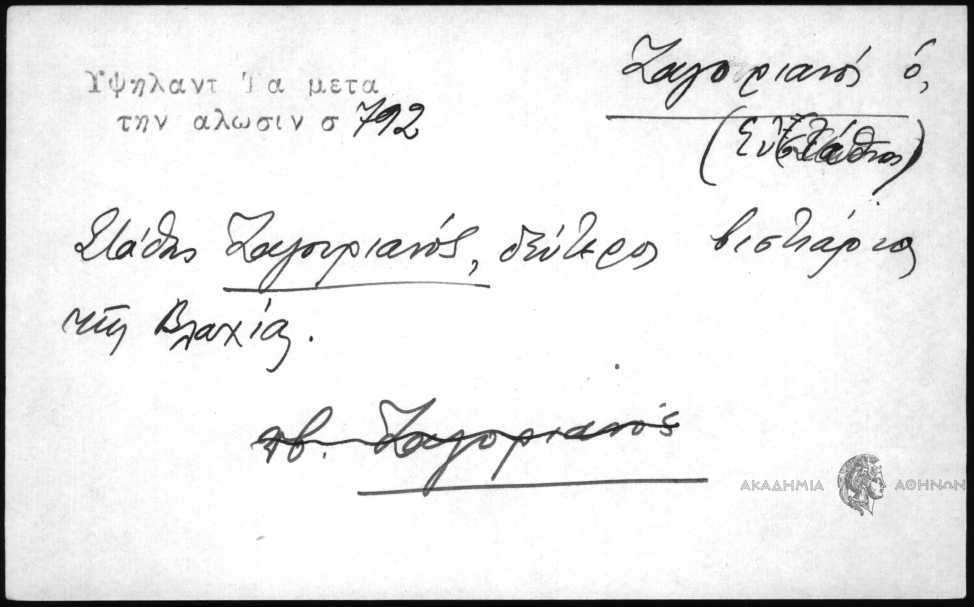 Υψηλαντ Τα μετα
την αλωσιν σ 792
Ζαγοριανός ὁ,
(Εὐστάθιος)
Στάθης Ζαγοριανός, δεύτερος βιστιάριος
τῆς Βλαχίας.
πβ. Ζαγοριανός
ΑΚΑΔΗΜΙΑ ΑΘΗΝΩΝ